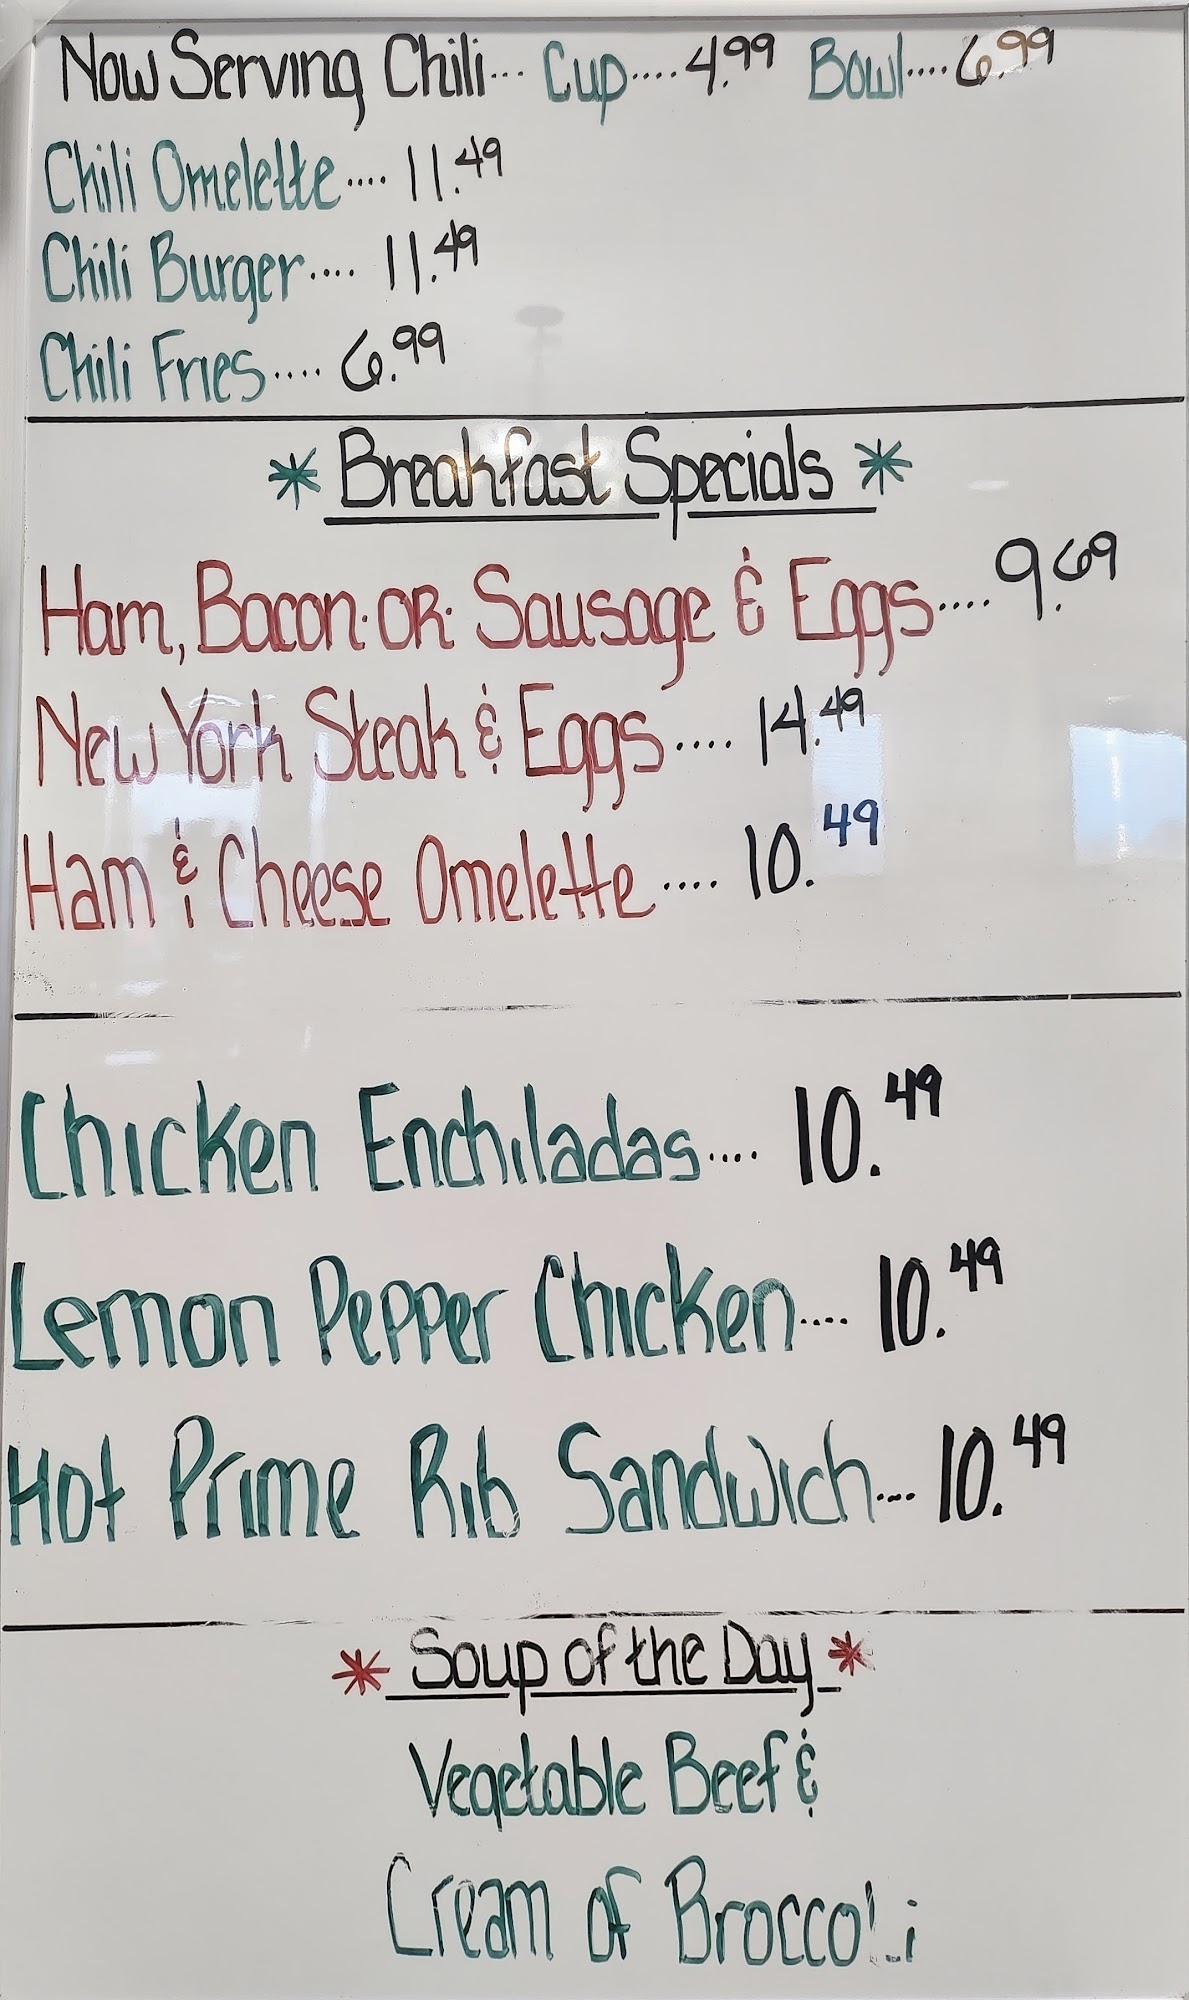 Now Serving Chili... Cup.... 4.99 Bowl.... 6.99
Chili Omelette.... 11.49
Chili Burger.... 11.49
Chili Fries.... 6.99
* Breakfast Specials *
Ham, Bacon·OR· Sausage & Eggs.... 9.69
New York Steak & Eggs.... 14.49
Ham & Cheese Omelette.... 10.49
Chicken Enchiladas.... 10.49
Lemon Pepper Chicken.... 10.49
Hot Prime Rib Sandwich... 10.49
* Soup of the Day *
Vegetable Beef &
Cream of Broccoli